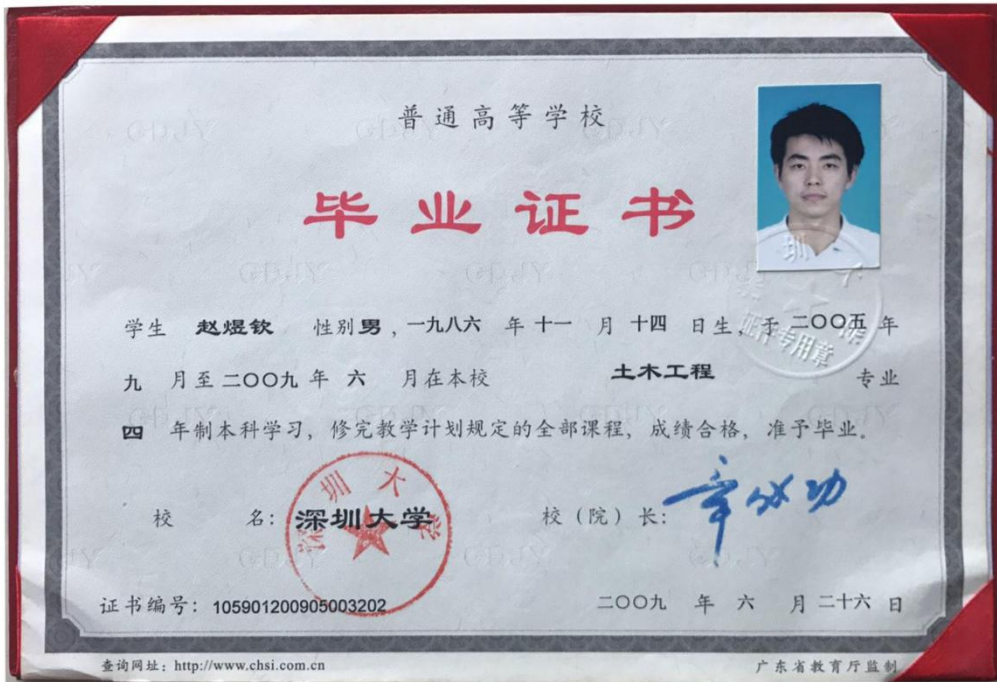 普通高等学校
毕业证书
学生 赵煜钦 性别男，一九八六 年十一 月十四 日生，于二〇〇五年
九 月至二〇〇九年 六 月在本校 土木工程 专业
四 年制本科学习，修完教学计划规定的全部课程，成绩合格，准予毕业。
校 名：深圳大学 校（院）长：章必功
深圳大学
证件专用章
证书编号：105901200905003202 二〇〇九 年 六 月二十六日
查询网址：http://www.chsi.com.cn 广东省教育厅监制